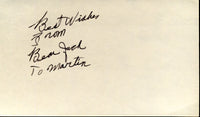 Best Wishes
From
Beau Jack
To Martin